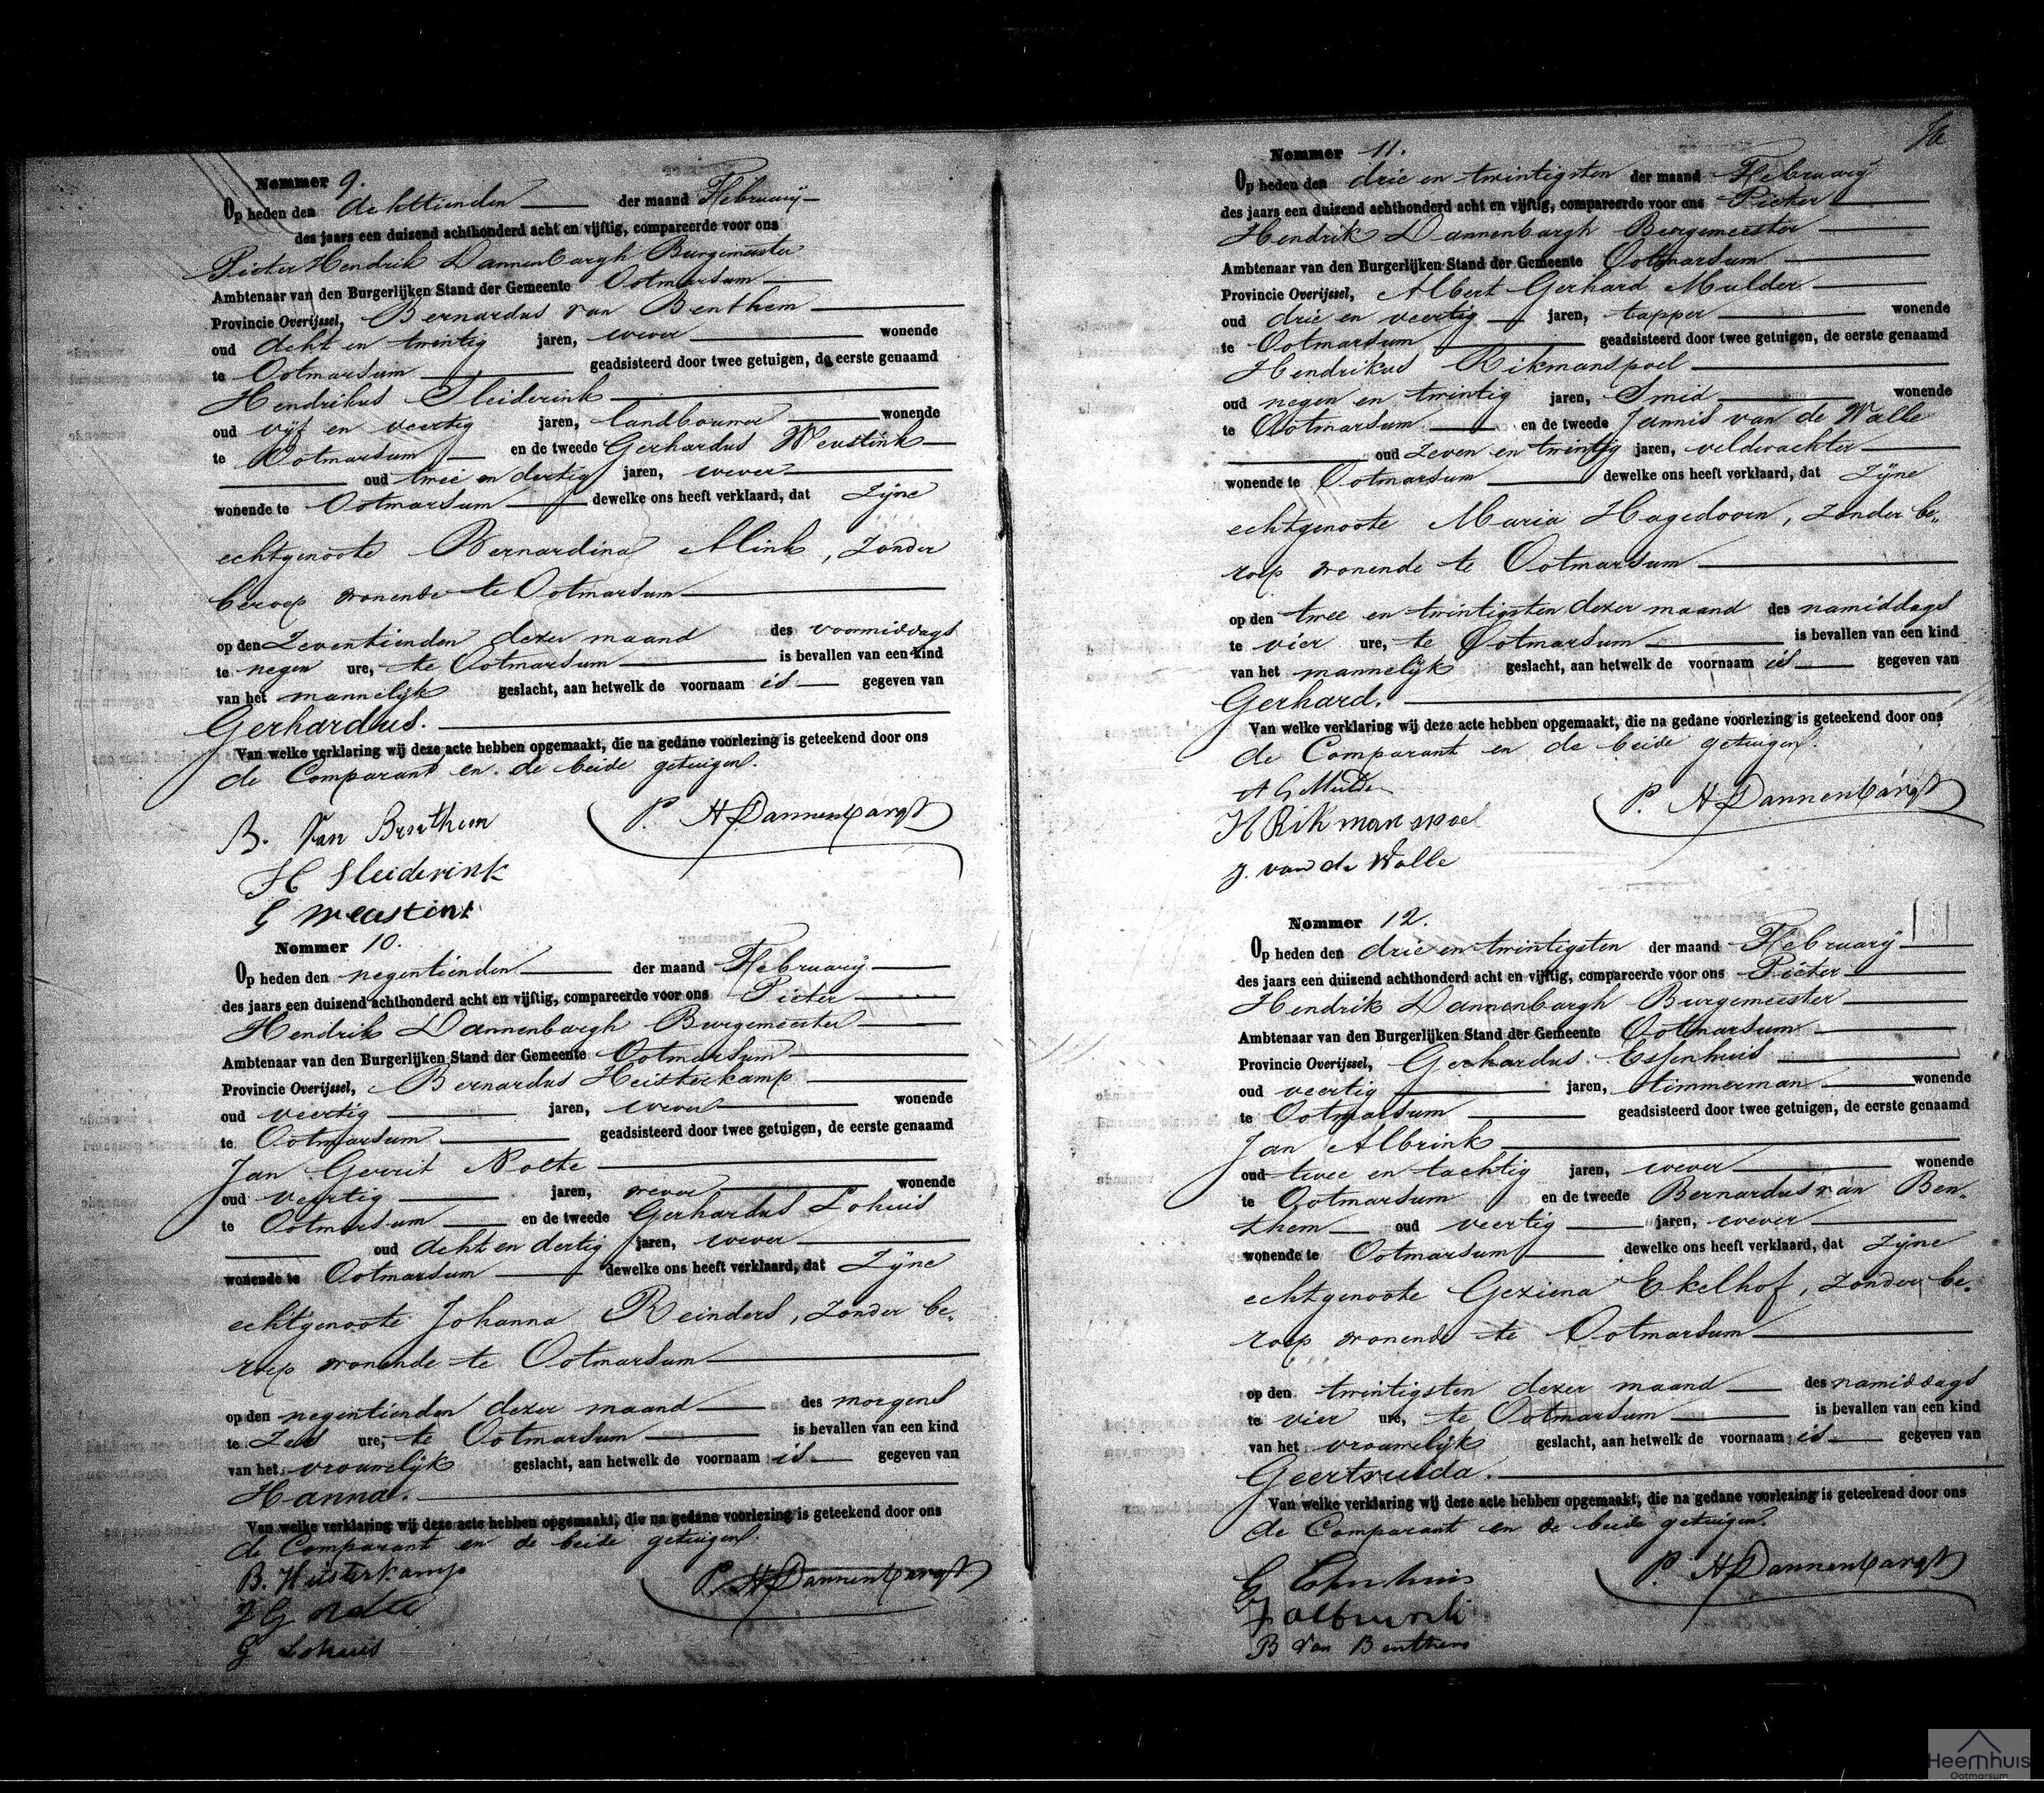 Nommer 9.
Op heden den achttienden der maand February
des jaars een duizend achthonderd acht en vijftig, compareerde voor ons
Pieter Hendrik Dannenbargh Burgemeester
Ambtenaar van den Burgerlijken Stand der Gemeente Ootmarsum
Provincie Overijssel, Bernardus van Benthem
oud acht en twintig jaren, wever wonende
te Ootmarsum geadsisteerd door twee getuigen, de eerste genaamd
Hendrikus Sleiderink
oud vijf en veertig jaren, landbouwer wonende
te Ootmarsum en de tweede Gerhardus Weustink
oud twee en dertig jaren, wever
wonende te Ootmarsum dewelke ons heeft verklaard, dat Zijne
echtgenoote Bernardina Mink, zonder
beroep wonende te Ootmarsum
op den Zeventienden dezer maand des voormiddags
te negen ure, te Ootmarsum is bevallen van een kind
van het mannelijk geslacht, aan hetwelk de voornaam is gegeven van
Gerhardus.
Van welke verklaring wij deze acte hebben opgemaakt, die na gedane voorlezing is geteekend door ons
de Comparant en de beide getuigen.
B. Van Benthem P. H Dannenbargh
H Sleiderink
G Weustink
Nommer 10.
Op heden den negentienden der maand February
des jaars een duizend achthonderd acht en vijftig, compareerde voor ons Pieter
Hendrik Dannenbargh Burgemeester
Ambtenaar van den Burgerlijken Stand der Gemeente Ootmarsum
Provincie Overijssel, Bernardus Heisterkamp
oud veertig jaren, wever wonende
te Ootmarsum geadsisteerd door twee getuigen, de eerste genaamd
Jan Gerrit Nolte
oud veertig jaren, wever wonende
te Ootmarsum en de tweede Gerhardus Lohuis
oud acht en dertig jaren, wever
wonende te Ootmarsum dewelke ons heeft verklaard, dat Zijne
echtgenoote Johanna Reinders, zonder be-
roep wonende te Ootmarsum
op den negentienden dezer maand des morgens
te Zes ure, te Ootmarsum is bevallen van een kind
van het vrouwelijk geslacht, aan hetwelk de voornaam is gegeven van
Hanna.
Van welke verklaring wij deze acte hebben opgemaakt, die na gedane voorlezing is geteekend door ons
de Comparant en de beide getuigen.
B. Heisterkamp P. H Dannenbargh
J G Nolte
G Lohuis
Nommer 11.
Op heden den drie en twintigsten der maand February
des jaars een duizend achthonderd acht en vijftig, compareerde voor ons Pieter
Hendrik Dannenbargh Burgemeester
Ambtenaar van den Burgerlijken Stand der Gemeente Ootmarsum
Provincie Overijssel, Albert Gerhard Mulder
oud drie en veertig jaren, tapper wonende
te Ootmarsum geadsisteerd door twee getuigen, de eerste genaamd
Hendrikus Rikmanspoel
oud negen en twintig jaren, Smid wonende
te Ootmarsum en de tweede Jannis van de Walle
oud Zeven en twintig jaren, veldwachter
wonende te Ootmarsum dewelke ons heeft verklaard, dat Zijne
echtgenoote Maria Hagedoorn, zonder be-
roep wonende te Ootmarsum
op den twee en twintigsten dezer maand des namiddags
te vier ure, te Ootmarsum is bevallen van een kind
van het mannelijk geslacht, aan hetwelk de voornaam is gegeven van
Gerhard.
Van welke verklaring wij deze acte hebben opgemaakt, die na gedane voorlezing is geteekend door ons
de Comparant en de beide getuigen.
A G Mulder P. H Dannenbargh
H Rikmanspoel
J. van de Walle
Nommer 12.
Op heden den drie en twintigsten der maand February
des jaars een duizend achthonderd acht en vijftig, compareerde voor ons Pieter
Hendrik Dannenbargh Burgemeester
Ambtenaar van den Burgerlijken Stand der Gemeente Ootmarsum
Provincie Overijssel, Gerhardus Essenhuis
oud veertig jaren, timmerman wonende
te Ootmarsum geadsisteerd door twee getuigen, de eerste genaamd
Jan Albrink
oud twee en tachtig jaren, wever wonende
te Ootmarsum en de tweede Bernardus van Ben-
them oud veertig jaren, wever
wonende te Ootmarsum dewelke ons heeft verklaard, dat Zijne
echtgenoote Geziena Ekelhof, zonder be-
roep wonende te Ootmarsum
op den twintigsten dezer maand des namiddags
te vier ure, te Ootmarsum is bevallen van een kind
van het vrouwelijk geslacht, aan hetwelk de voornaam is gegeven van
Geertruida.
Van welke verklaring wij deze acte hebben opgemaakt, die na gedane voorlezing is geteekend door ons
de Comparant en de beide getuigen.
G Essenhuis P. H Dannenbargh
J Albrink
B Van Benthem
Heemhuis
Ootmarsum